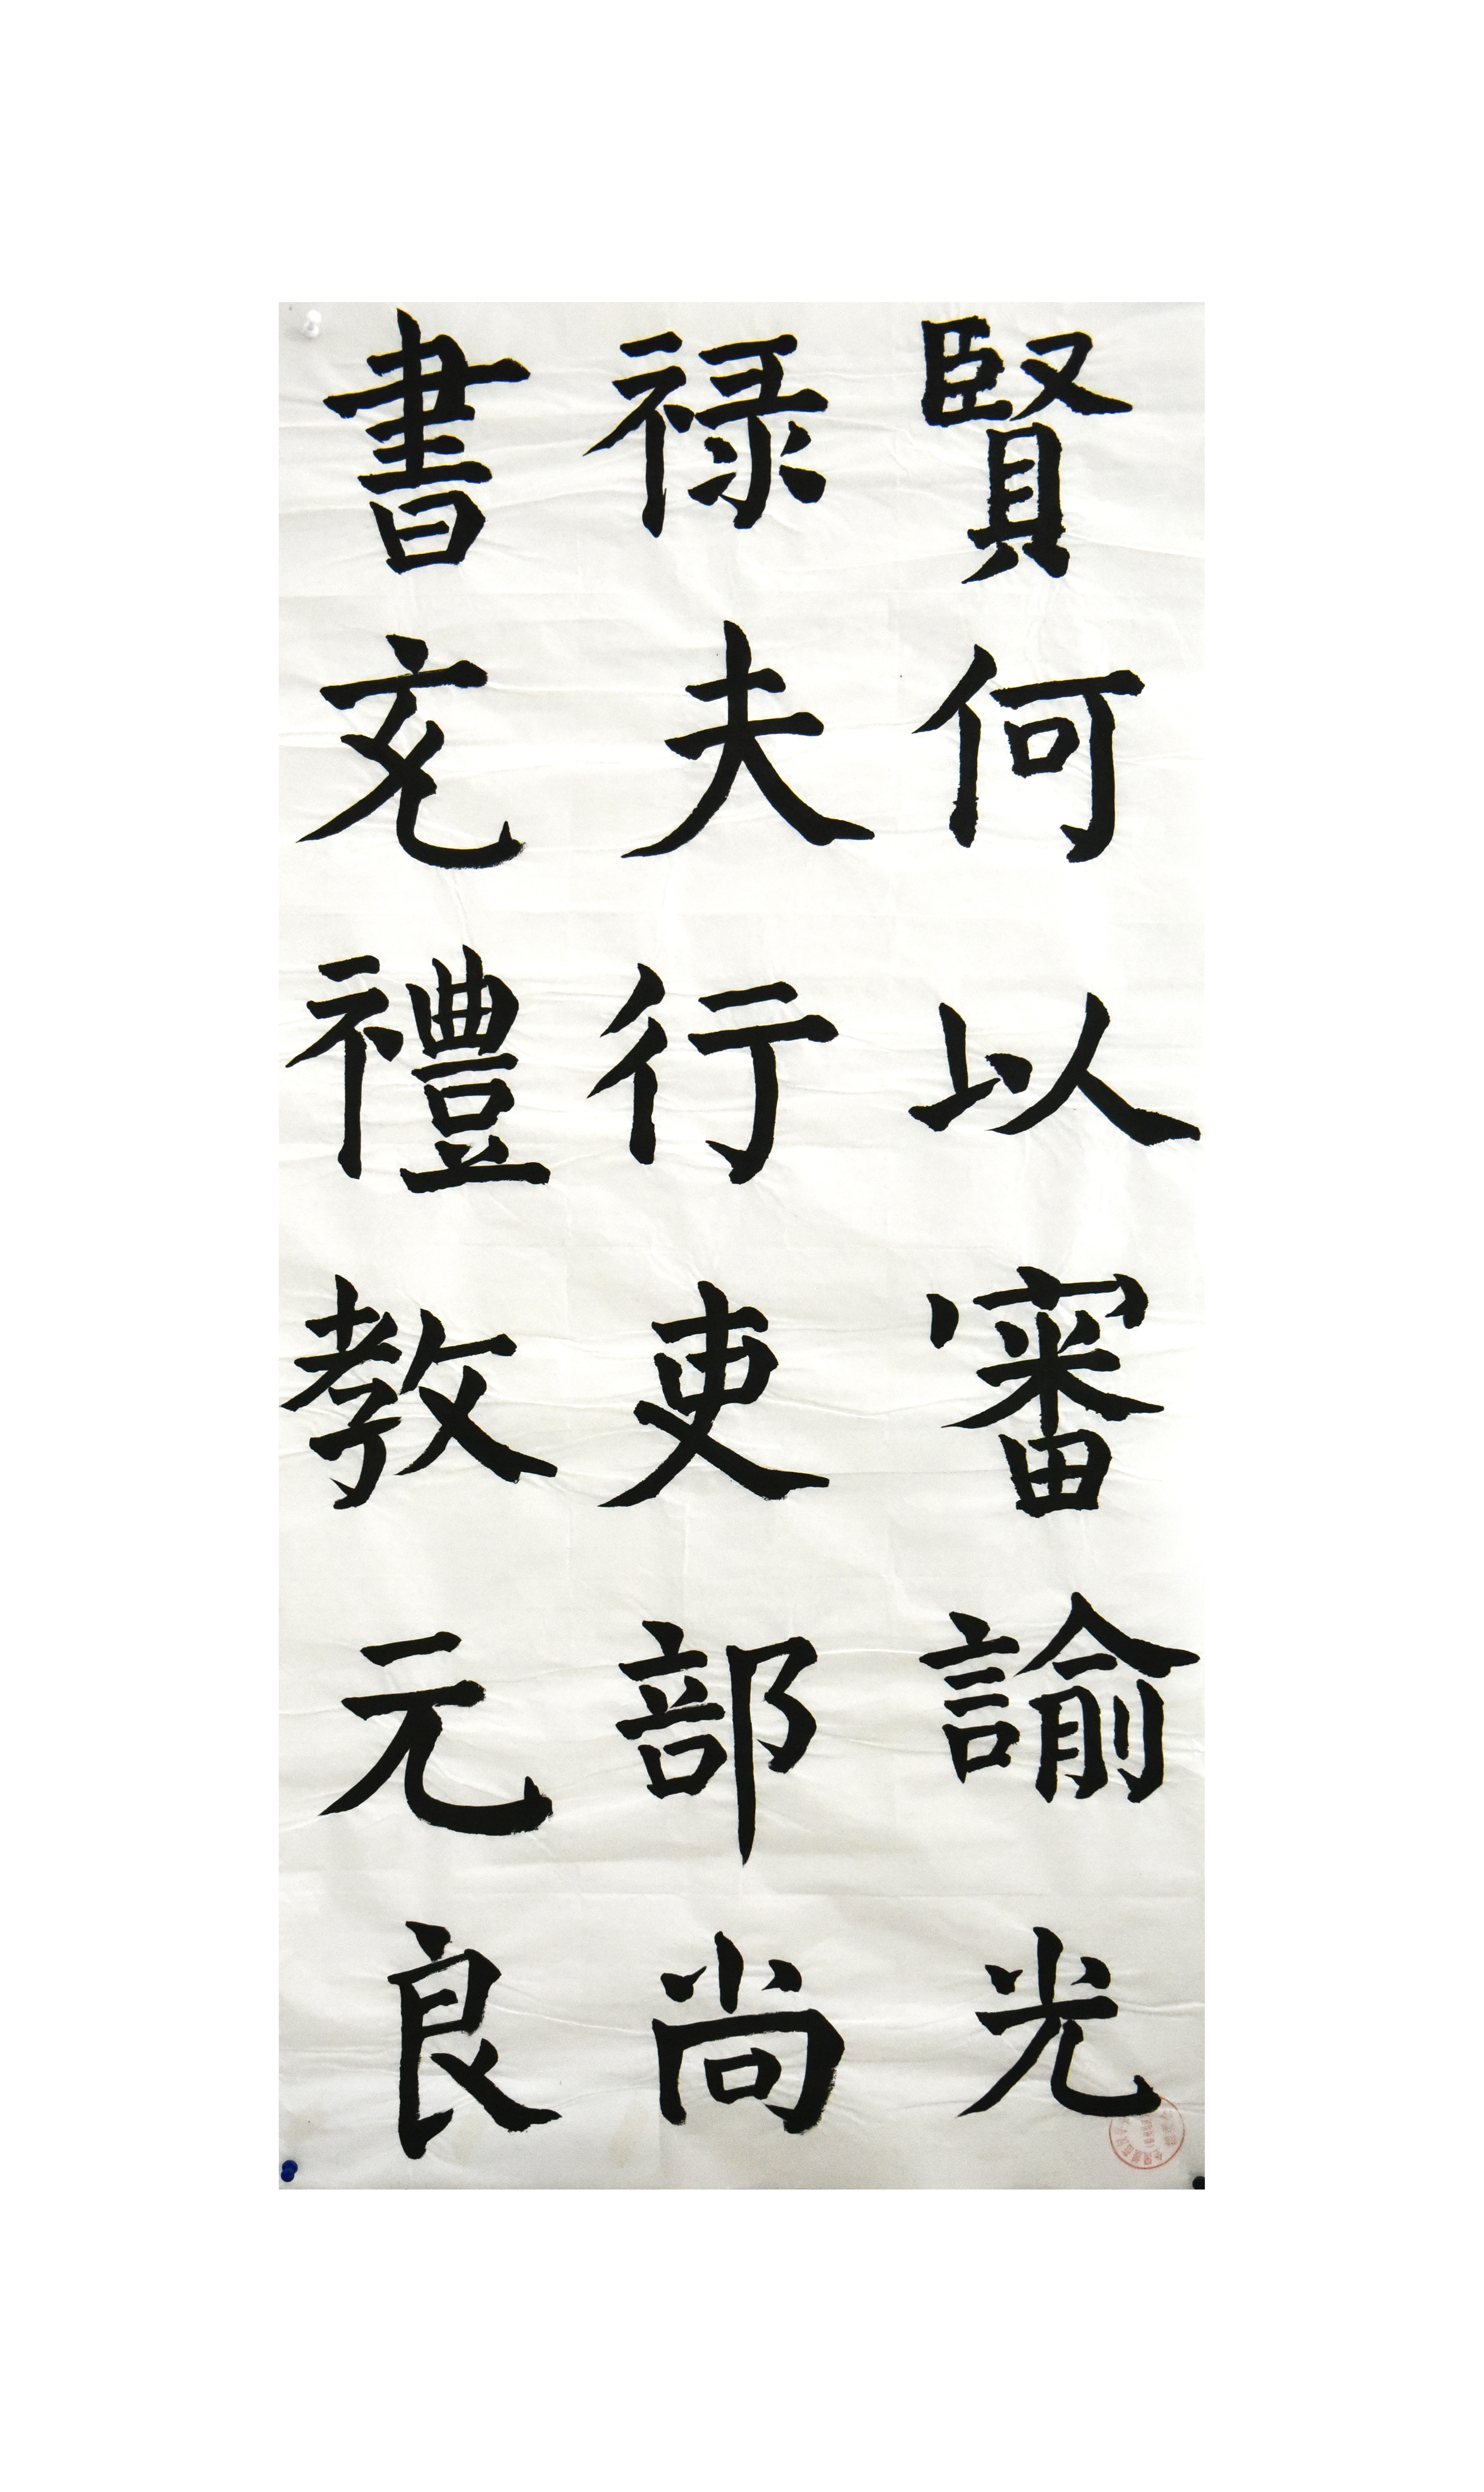 賢何以審諭光
禄夫行吏部尚
書充禮教元良